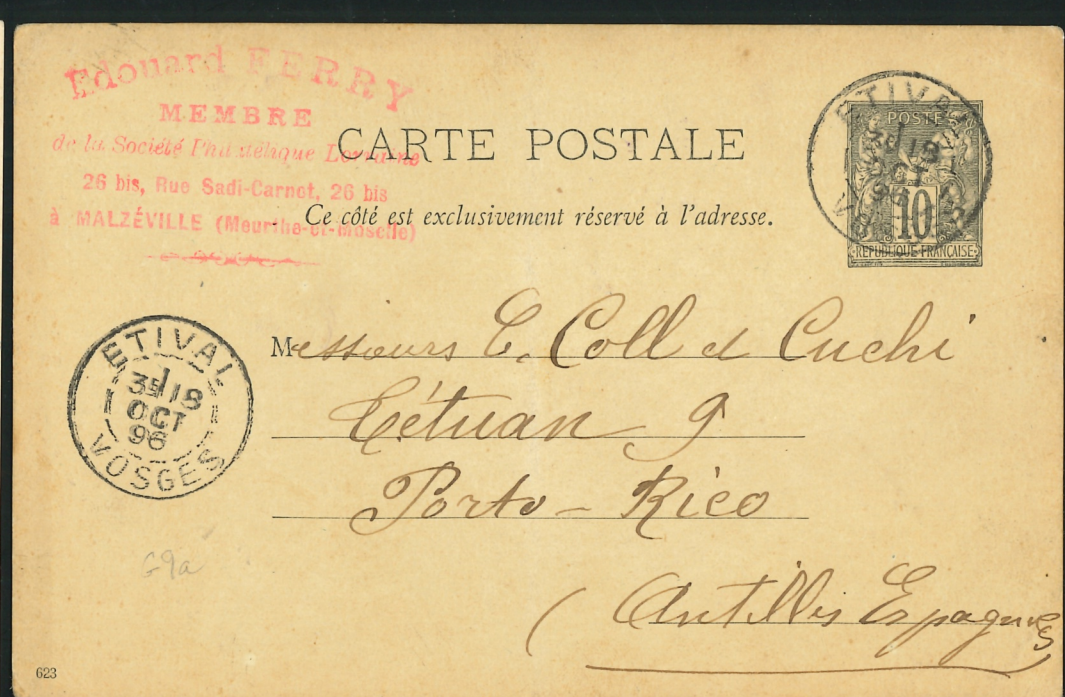 Edouard FERRY
MEMBRE
de la Société Philatélique Lorraine
26 bis, Rue Sadi-Carnot, 26 bis
à MALZÉVILLE (Meurthe-et-Moselle)
CARTE POSTALE
Ce côté est exclusivement réservé à l'adresse.
POSTES
10
REPUBLIQUE FRANÇAISE
ETIVAL
18
OCT
VOSGES
ETIVAL
18
OCT
96
VOSGES
Messieurs E. Coll et Cuchi
Tétuan 9
Porto-Rico
(Antilles Espagnoles
G9a
623